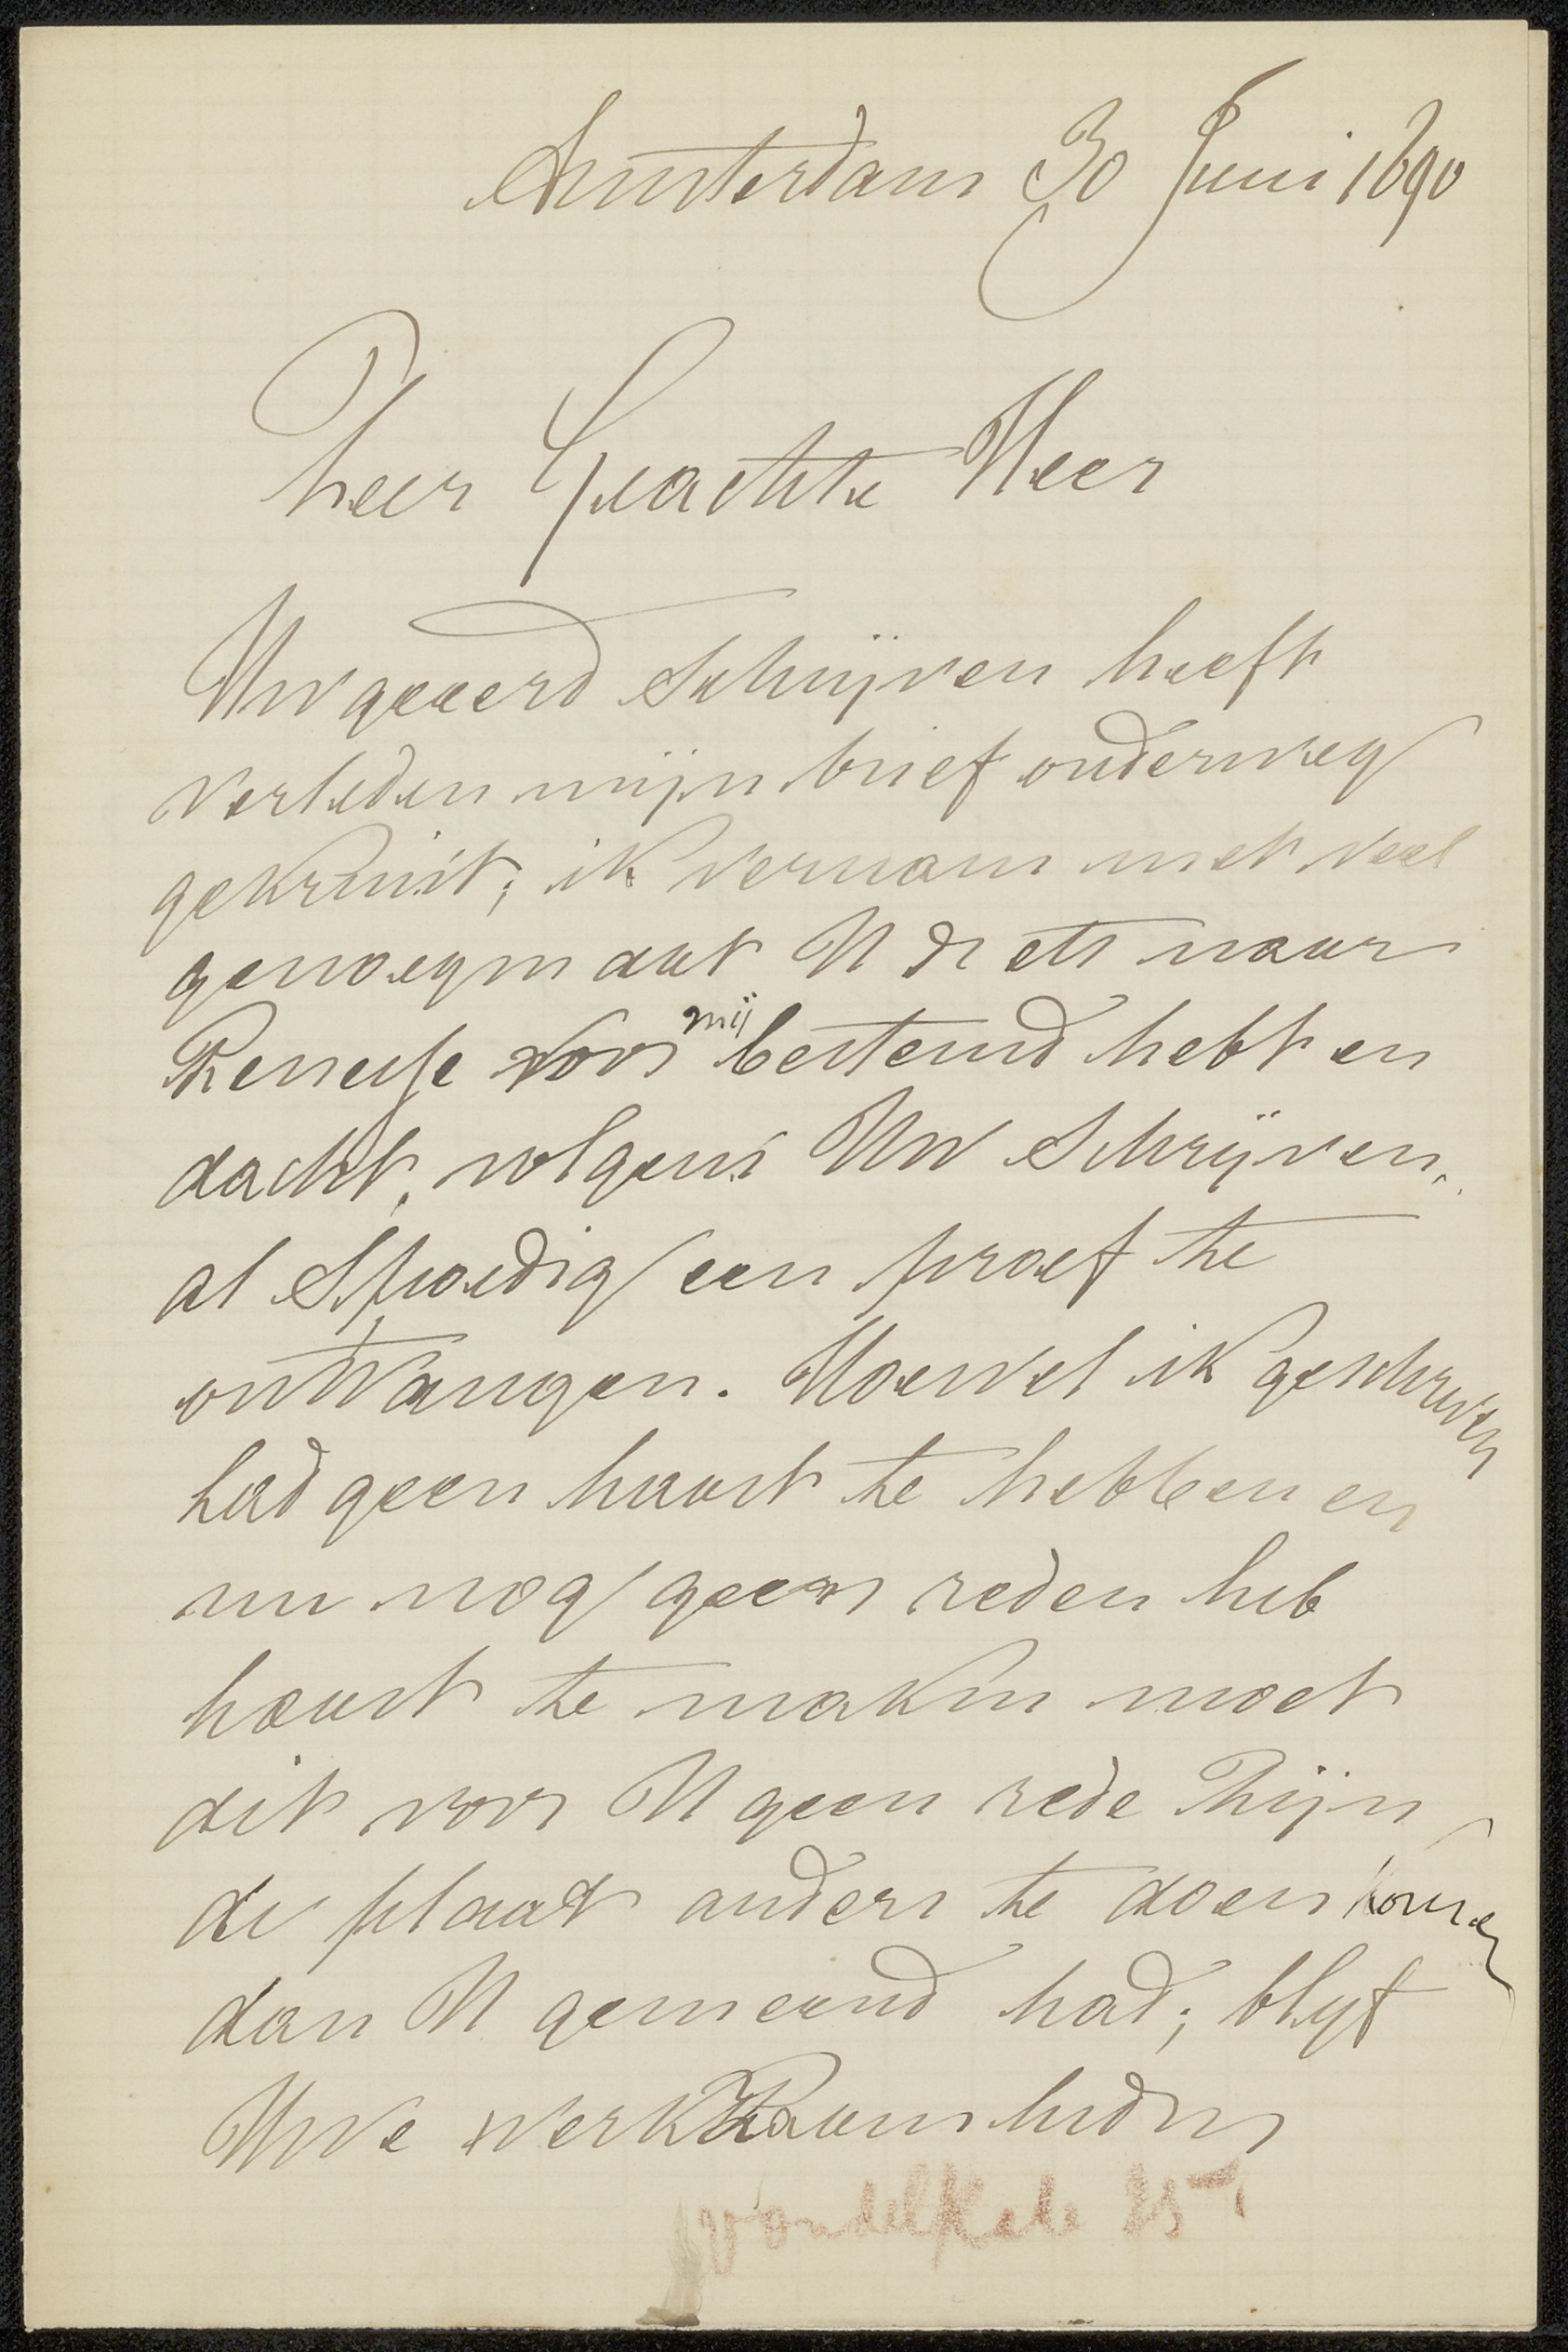 Amsterdam 30 Juni 1890
Zeer Geachte Heer
Uw geeerd schrijven heeft
verleden mijn brief onderweg
gekruist; ik vernam met veel
genoegen dat U de ets naar
Renesse voor mij bestemd hebt en
dacht, volgens Uw schrijven,
al spoedig een proef te
ontvangen. Hoewel ik geschreven
had geen haast te hebben en
nu nog geen reden heb
haast te maken moet
dit voor U geen rede zijn
de plaat anders te doen komen
dan U gemeend had; blijf
Uwe werkzaamheden
Vondelkade 25